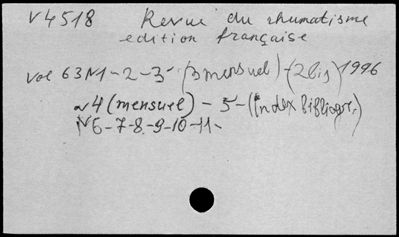 V4518 Revue du rhumatisme
edition française
vol 63 N1-2-3 (3 mensuel) (2bis) 1996
N4 (mensuel) - 5 - (index bibliogr.)
N6-7-8-9-10-11-